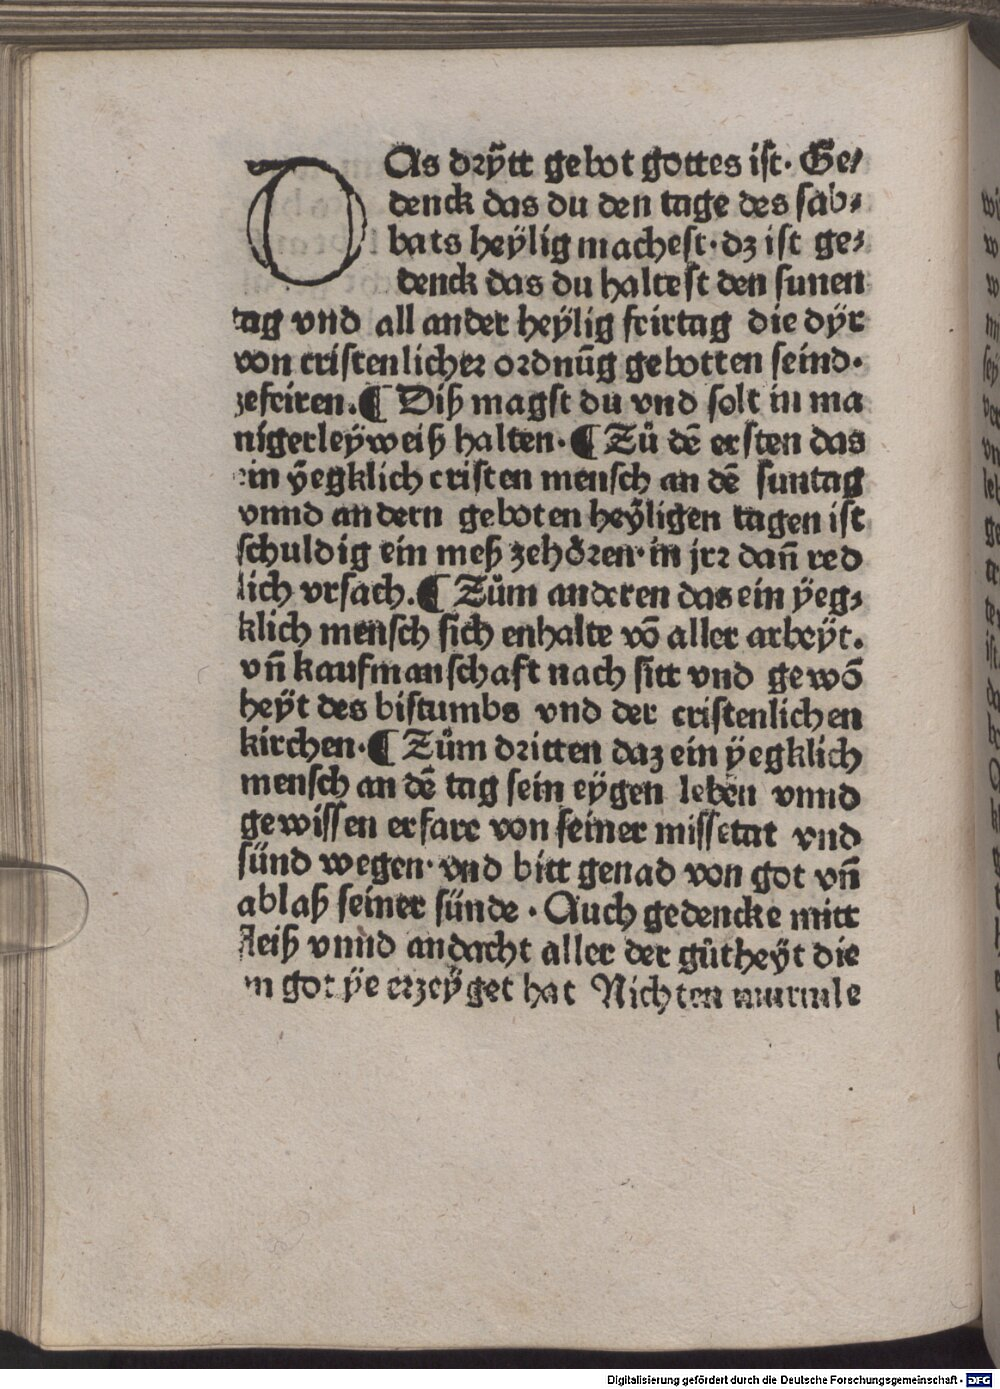 DAs drÿtt gebot gottes ist. Ge/
denck das du den tage des sab⸗
bats heÿlig machest·dz ist ge⸗
denck das du haltest den sunen
tag vnd all ander heÿlig feirtag die dÿr
von cristenlicher ordnūg gebotten seind·
zefeiren.¶ Diß magst du vnd solt in ma
nigerleÿweiß halten·¶ Zů dē ersten das
ein ÿegklich cristen mensch an dē suntag
vnnd andern geboten heÿligen tagen ist
schuldig ein meß zehören·in jrr dañ red
lich vrsach.¶ Zům anderen das ein ÿeg⸗
klich mensch sich enhalte vō aller arbeÿt.
vñ kaufmanschaft nach sitt vnd gewō
heÿt des bistumbs vnd der cristenlichen
kirchen·¶ Zům dritten daz ein ÿegklich
mensch an dē tag sein eÿgen leben vnnd
gewissen erfare von seiner missetat vnd
sünd wegen· vnd bitt genad von got vñ
ablaß seiner sünde · Auch gedencke mitt
fleiß vnnd andacht aller der gůtheÿt die
im got ÿe erzeÿget hat Nichten murmle
Digitalisierung gefördert durch die Deutsche Forschungsgemeinschaft - DFG